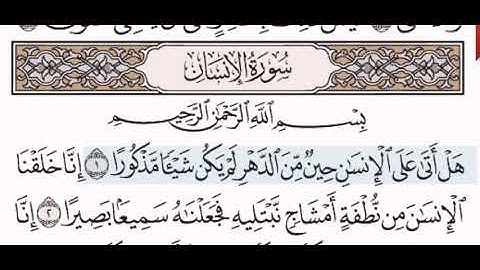 سُورَةُ الإِنسَانِ
بِسْمِ اللَّهِ الرَّحْمَٰنِ الرَّحِيمِ
هَلْ أَتَىٰ عَلَى الْإِنسَانِ حِينٌ مِّنَ الدَّهْرِ لَمْ يَكُن شَيْئًا مَّذْكُورًا ١ إِنَّا خَلَقْنَا
الْإِنسَانَ مِن نُّطْفَةٍ أَمْشَاجٍ نَّبْتَلِيهِ فَجَعَلْنَاهُ سَمِيعًا بَصِيرًا ٢ إِنَّا